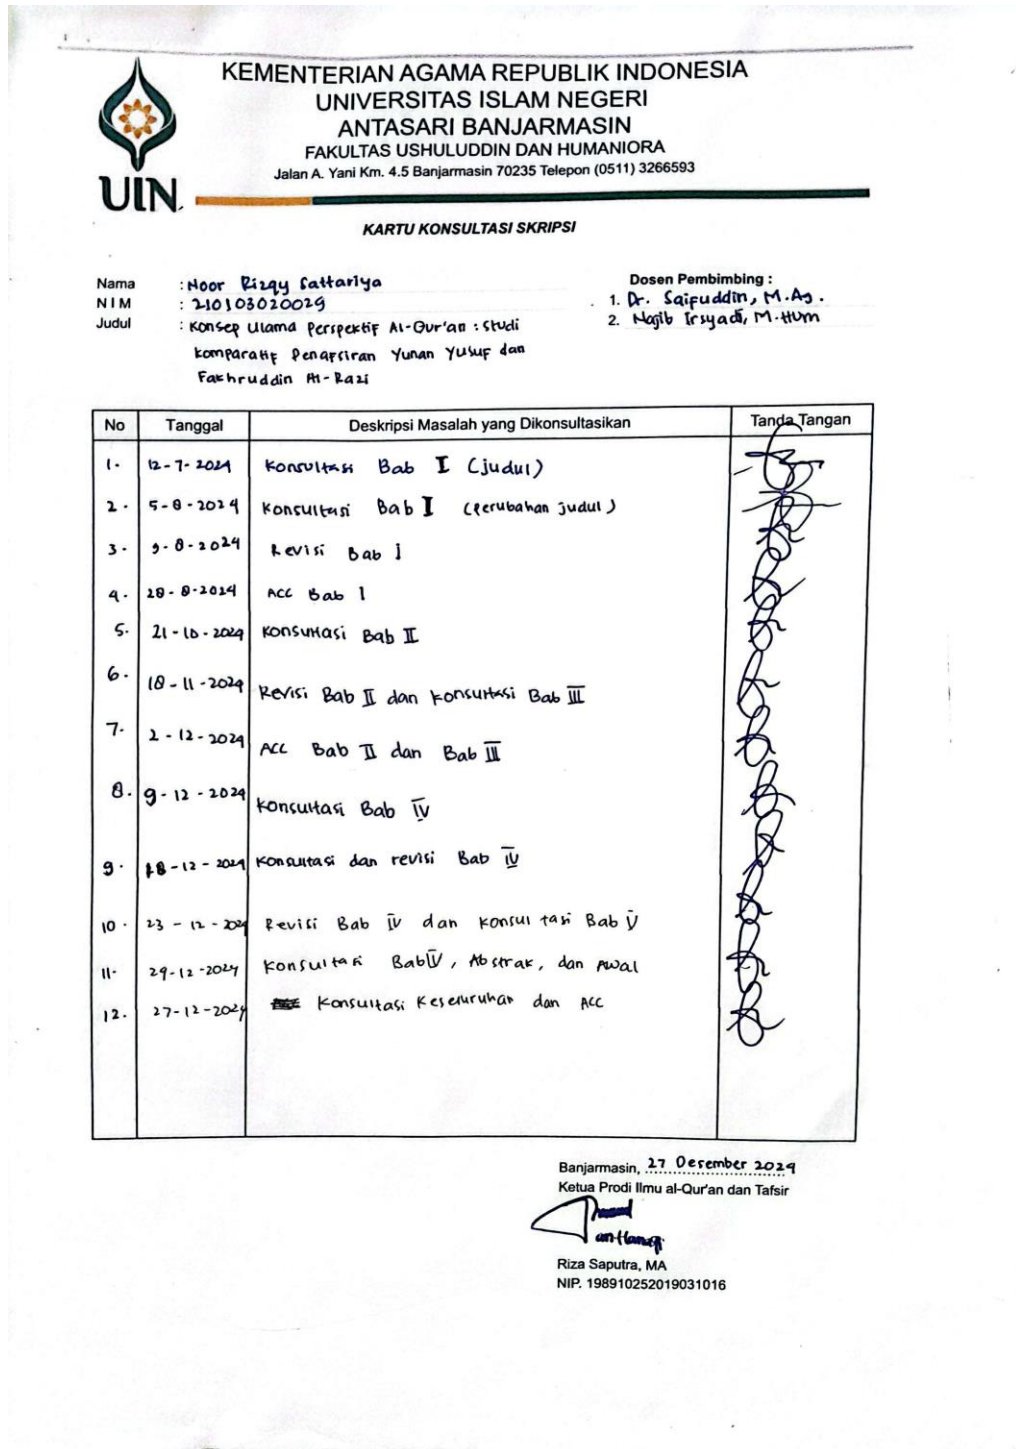 KEMENTERIAN AGAMA REPUBLIK INDONESIA
UNIVERSITAS ISLAM NEGERI
ANTASARI BANJARMASIN
FAKULTAS USHULUDDIN DAN HUMANIORA
Jalan A. Yani Km. 4.5 Banjarmasin 70235 Telepon (0511) 3266593
UIN
KARTU KONSULTASI SKRIPSI
Nama : Noor Rizqy Sattariya
NIM : 210103020029
Judul : Konsep Ulama Perspektif Al-Qur'an : Studi
Komparatif Penafsiran Yunan Yusuf dan
Fakhruddin Al-Razi
Dosen Pembimbing :
1. Dr. Saifuddin, M.Ag.
2. Najib Irsyadi, M.Hum
No Tanggal Deskripsi Masalah yang Dikonsultasikan Tanda Tangan
1. 12-7-2024 Konsultasi Bab I (judul)
2. 5-8-2024 Konsultasi Bab I (perubahan judul)
3. 9-8-2024 Revisi Bab I
4. 28-8-2024 ACC Bab 1
5. 21-10-2024 Konsultasi Bab II
6. 18-11-2024 Revisi Bab II dan Konsultasi Bab III
7. 2-12-2024 ACC Bab II dan Bab III
8. 9-12-2024 Konsultasi Bab IV
9. 18-12-2024 Konsultasi dan revisi Bab IV
10. 23-12-2024 Revisi Bab IV dan Konsultasi Bab V
11. 24-12-2024 Konsultasi Bab IV, Abstrak, dan Awal
12. 27-12-2024 Konsultasi Keseluruhan dan ACC
Banjarmasin, 27 Desember 2024
Ketua Prodi Ilmu al-Qur'an dan Tafsir
Riza Saputra, MA
NIP. 198910252019031016